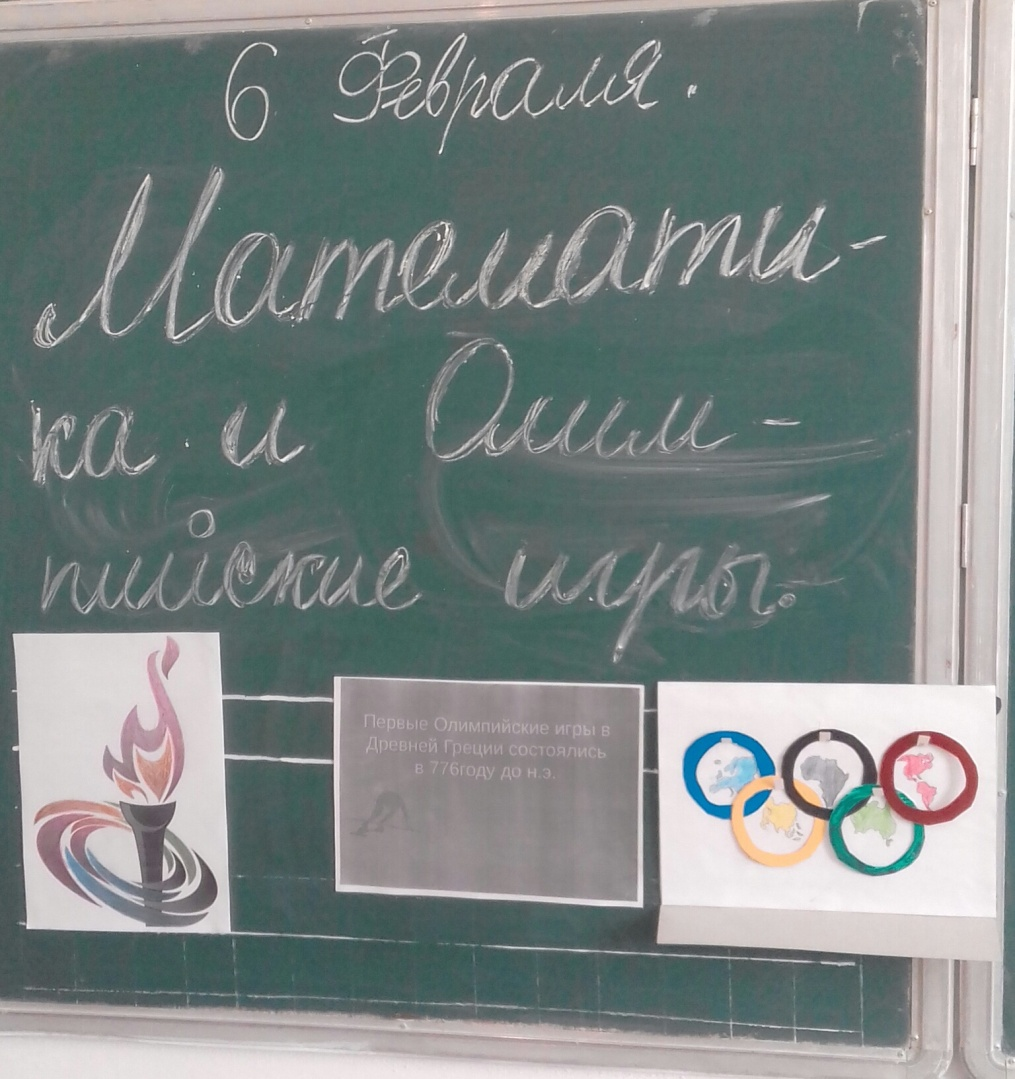 6 Февраля.
Математи-
ка и Олим-
пийские игры.
Первые Олимпийские игры в
Древней Греции состоялись
в 776году до н.э.